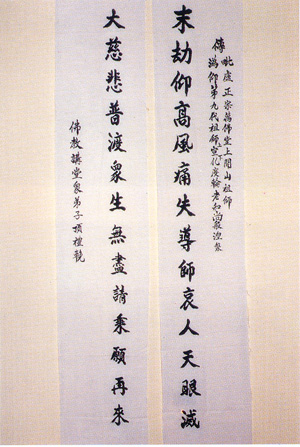 毗盧正宗萬佛堂上開山祖師
傳溈仰第九代祖師宣化度輪老和尚般涅槃
末劫仰高風痛失導師哀人天眼滅
大慈悲普渡衆生無盡請乘願再來
佛教講堂衆弟子頂禮輓